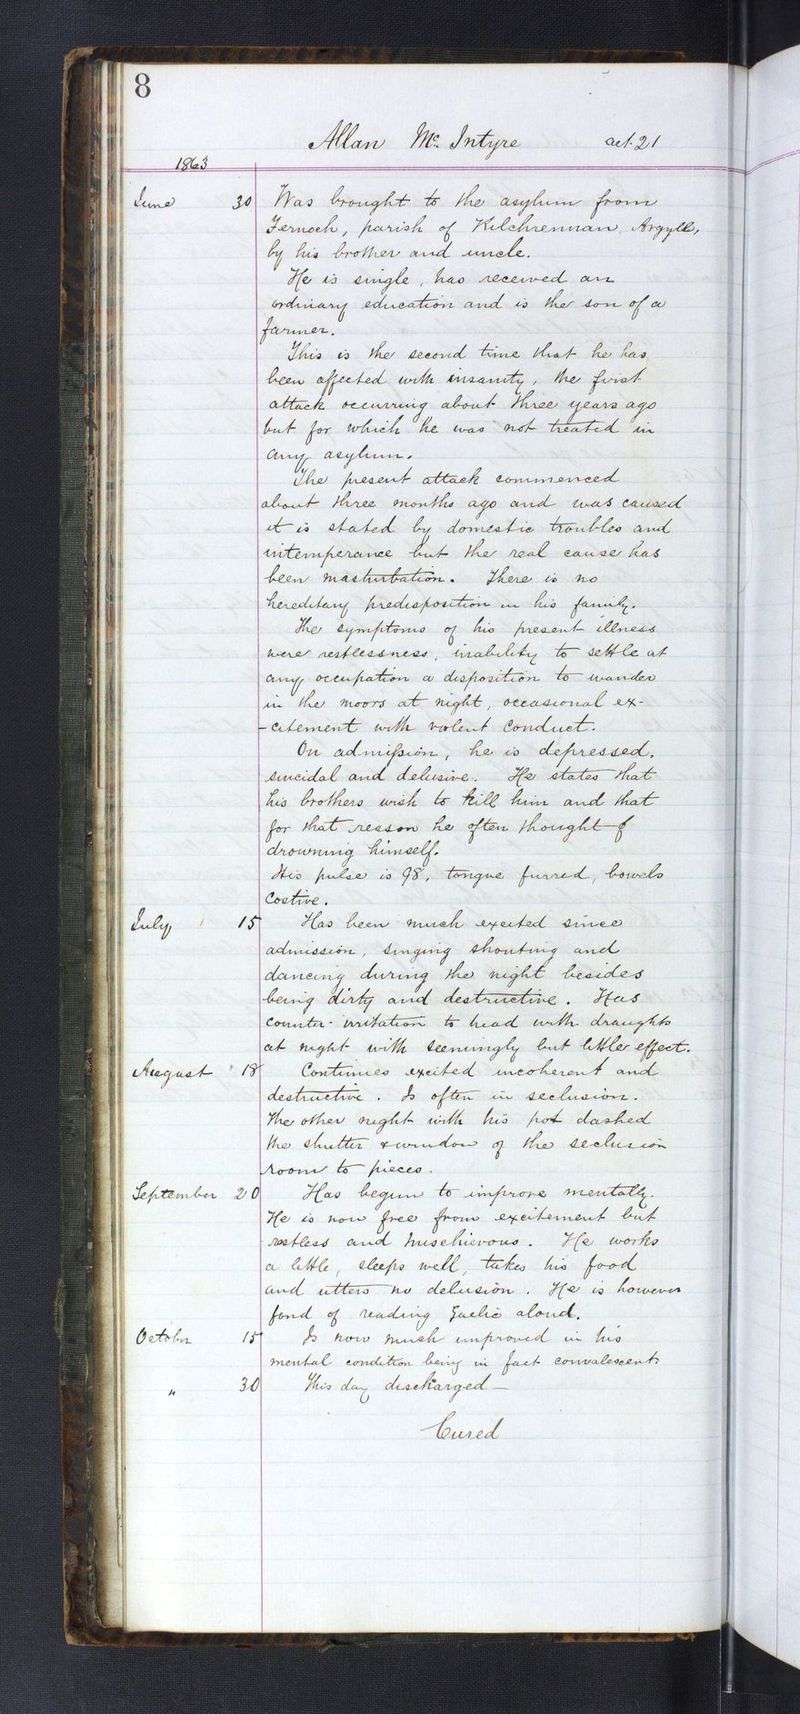 8
Allan Mc Intyre aet. 21
1863
June 30 Was brought to the asylum from
Fernoch, parish of Kilchrennan, Argyll,
by his brother and uncle.
He is single, has received an
ordinary education and is the son of a
farmer.
This is the second time that he has
been affected with insanity, the first
attack occurring about three years ago
but for which he was not treated in
any asylum.
The present attack commenced
about three months ago and was caused
it is stated by domestic troubles and
intemperance but the real cause has
been masturbation. There is no
hereditary predisposition in his family.
The symptoms of his present illness
were restlessness, inability to settle at
any occupation a disposition to wander
in the moors at night, occasional ex-
-citement with violent conduct.
On admission, he is depressed,
suicidal and delusive. He states that
his brothers wish to kill him and that
for that reason he often thought of
drowning himself.
His pulse is 98, tongue furred, bowels
costive.
July 15 Has been much excited since
admission, singing shouting and
dancing during the night besides
being dirty and destructive. Has
counter-irritation to head with draughts
at night with seemingly but little effect.
August 18 Continues excited incoherent and
destructive. Is often in seclusion.
The other night with his pot dashed
the shutter & window of the seclusion
room to pieces.
September 20 Has begun to improve mentally.
He is now free from excitement but
restless and mischievous. He works
a little, sleeps well, takes his food
and utters no delusion. He is however
fond of reading Gaelic aloud.
October 15 Is now much improved in his
mental condition being in fact convalescent.
" 30 This day discharged —
Cured